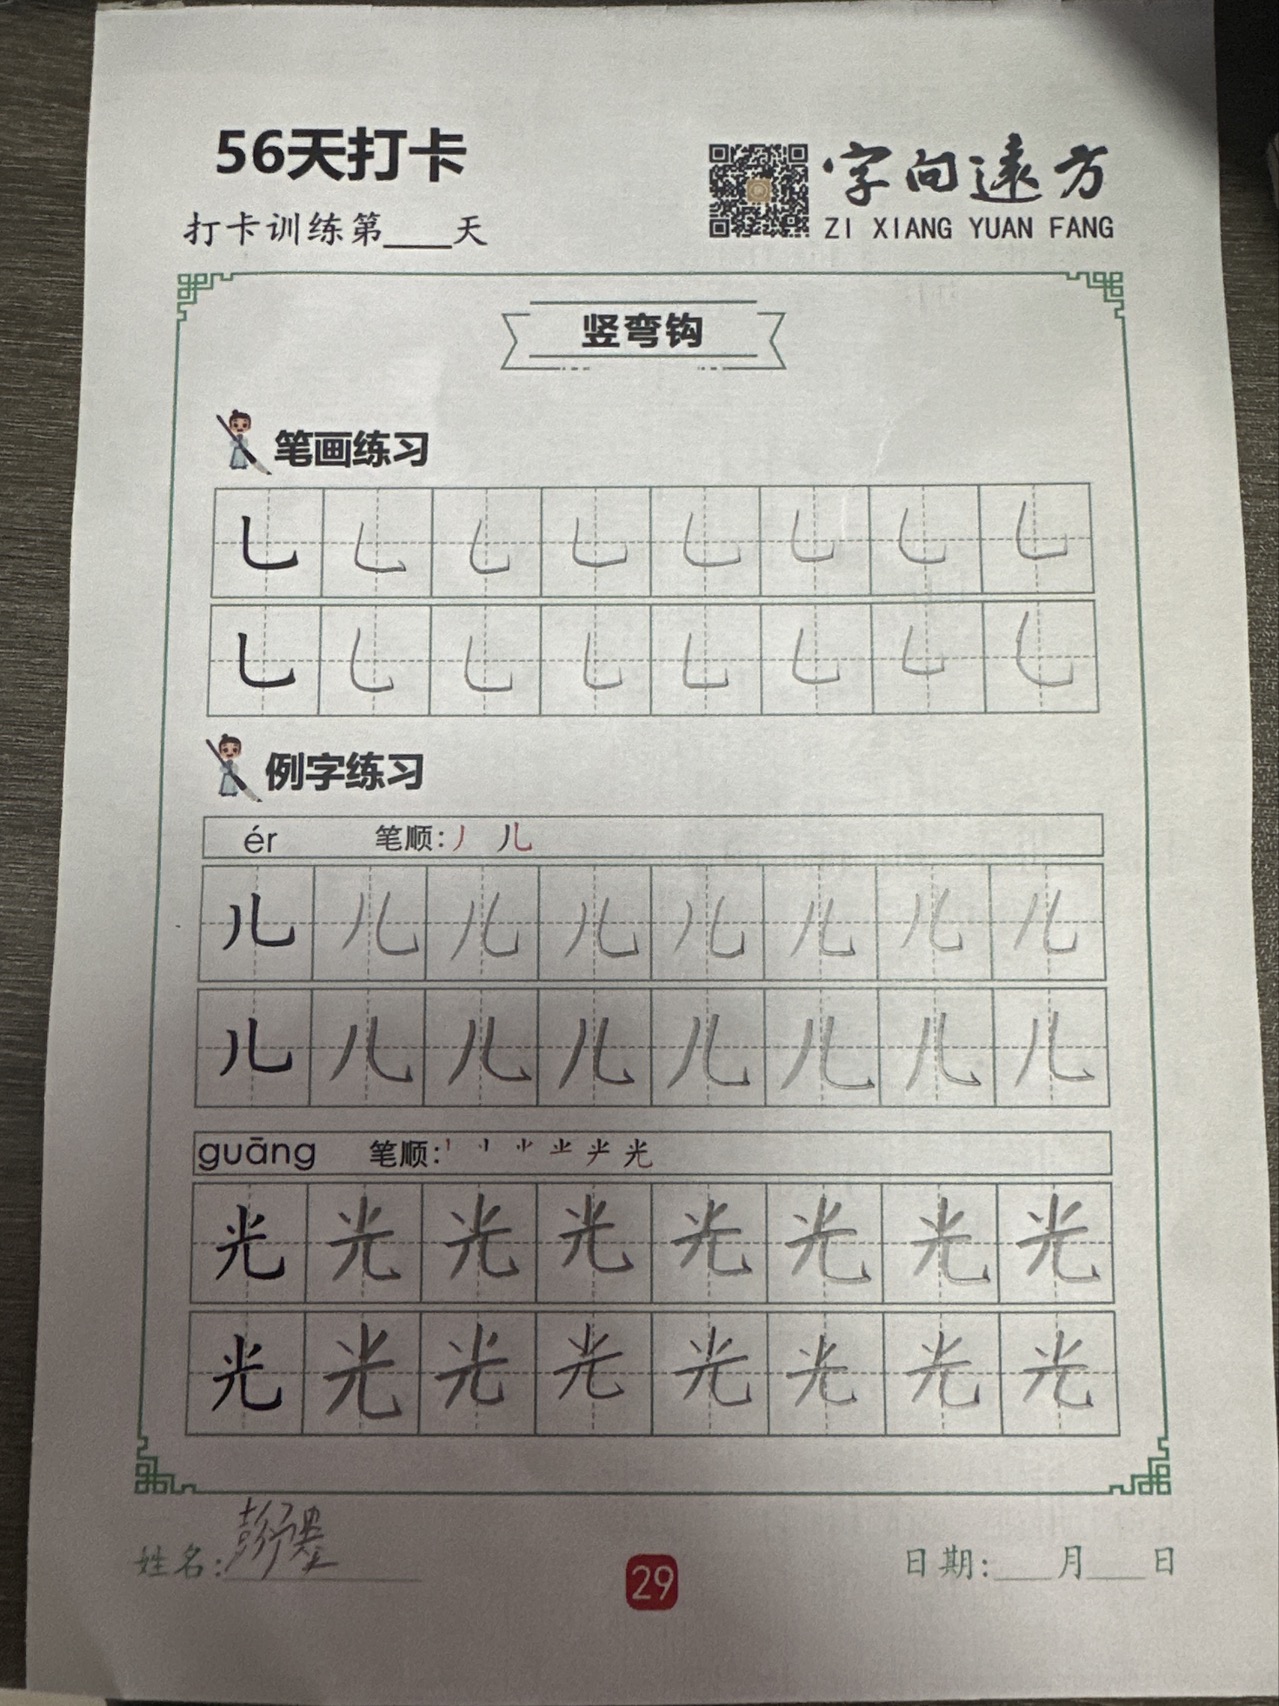 56天打卡
打卡训练第____天
字向遠方
ZI XIANG YUAN FANG
竖弯钩
笔画练习
乚 乚 乚 乚 乚 乚 乚 乚
乚 乚 乚 乚 乚 乚 乚 乚
例字练习
ér 笔顺:丿 儿
儿 儿 儿 儿 儿 儿 儿 儿
儿 儿 儿 儿 儿 儿 儿 儿
guāng 笔顺: 光
光 光 光 光 光 光 光 光
光 光 光 光 光 光 光 光
姓名:彭
29
日期:____月____日